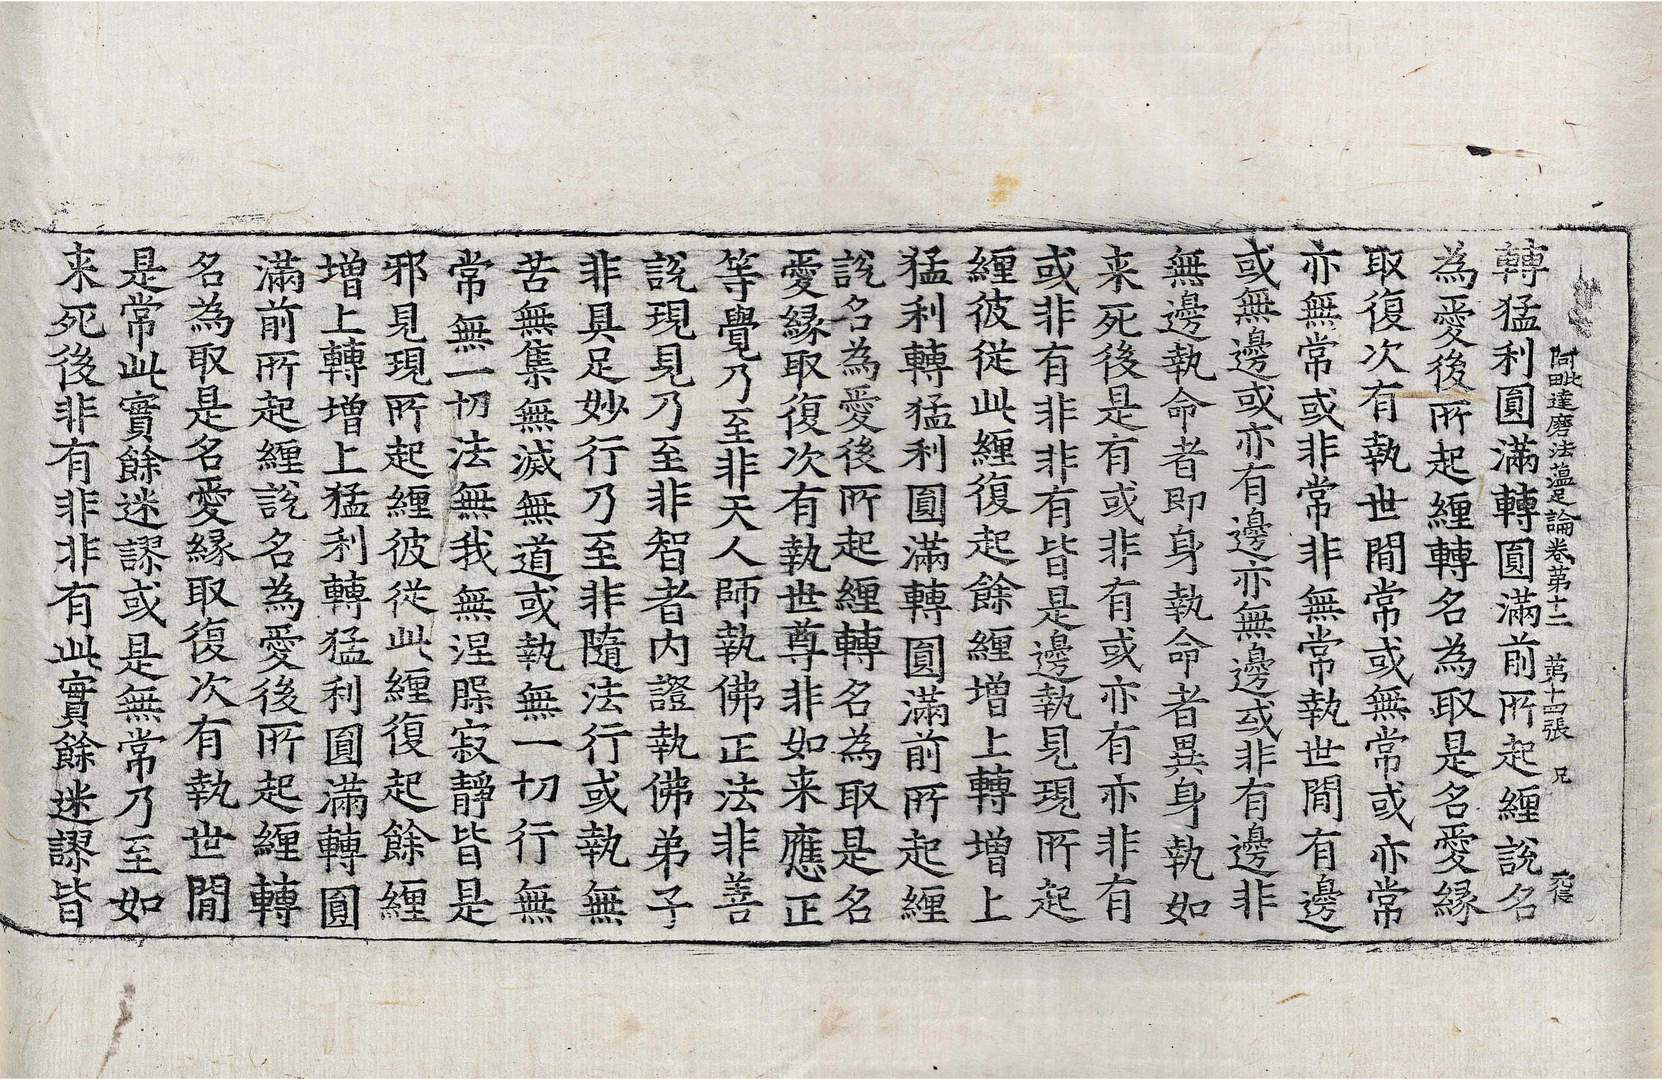 阿毗達磨法蘊足論卷第十二 第十四張 兄
轉猛利圓滿轉圓滿前所起纏說名
為愛後所起纏轉名為取是名愛緣
取復次有執世間常或無常或亦常
亦無常或非常非無常執世間有邊
或無邊或亦有邊亦無邊或非有邊非
無邊執命者即身執命者異身執如
来死後是有或非有或亦有亦非有
或非有非非有皆是邊執見現所起
纏彼從此纏復起餘纏增上轉增上
猛利轉猛利圓滿轉圓滿前所起纏
說名為愛後所起纏轉名為取是名
愛緣取復次有執世尊非如来應正
等覺乃至非天人師執佛正法非善
說現見乃至非智者內證執佛弟子
非具足妙行乃至非隨法行或執無
苦無集無滅無道或執無一切行無
常無一切法無我無涅槃寂靜皆是
邪見現所起纏彼從此纏復起餘纏
增上轉增上猛利轉猛利圓滿轉圓
滿前所起纏說名為愛後所起纏轉
名為取是名愛緣取復次有執世間
是常此實餘迷謬或是無常乃至如
来死後非有非非有此實餘迷謬皆